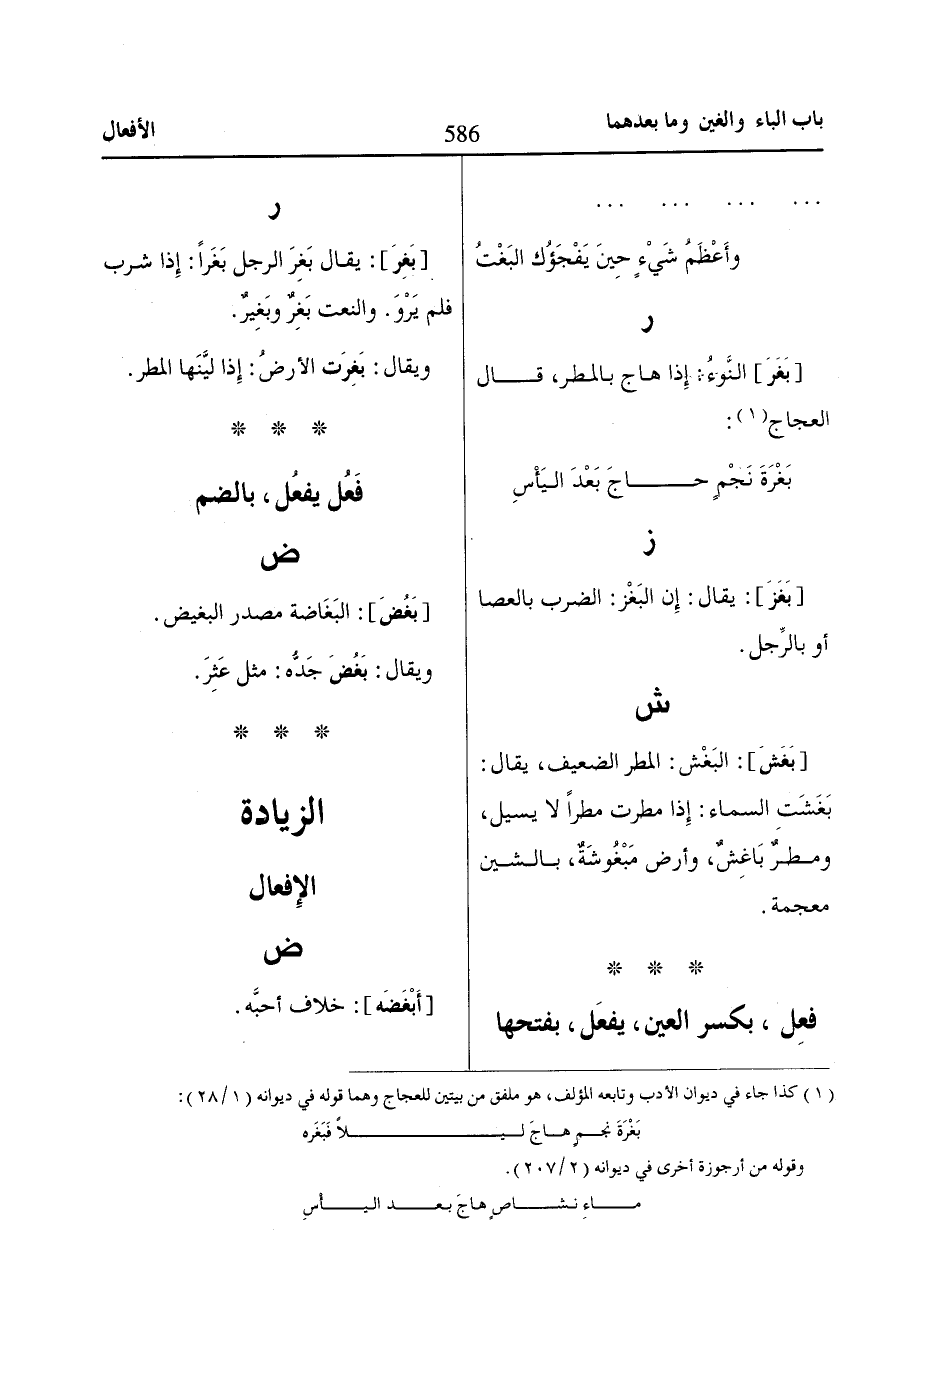 باب الباء والغين وما بعدهما
586
الأفعال
... ... ... ...
وأَعْظَمُ شَيْءٍ حينَ يَفْجَؤُك البَغْتُ
ر
[بَغَرَ] النَّوءُ: إذا هاج بالمطر، قال
العجاج(١):
بَغْرَةَ نَجْمٍ حاجَ بَعْدَ اليَأْسِ
ز
[بَغَزَ]: يقال: إن البَغْز: الضرب بالعصا
أو بالرِّجل.
ش
[بَغَشَ]: البَغْش: المطر الضعيف، يقال:
بَغَشَتِ السماء: إذا مطرت مطراً لا يسيل،
ومطرٌ بَاغشٌ، وأرض مَبْغُوشَةٌ، بالشين
معجمة.
* * *
فعِل ، بكسر العين، يفعَل، بفتحها
ر
[بَغِرَ]: يقال بَغِرَ الرجل بَغَراً: إذا شرب
فلم يَرْوَ. والنعت بَغِرٌ وبَغِيرٌ.
ويقال: بَغِرَت الأرضُ: إذا ليَّنَها المطر.
* * *
فَعُل يفعُل، بالضم
ض
[بَغُضَ]: البَغَاضة مصدر البغيض.
ويقال: بَغُضَ جَدُّه: مثل عَثِرَ.
* * *
الزيادة
الإفعال
ض
[أَبْغَضَه]: خلاف أحبَّه.
(١) كذا جاء في ديوان الأدب وتابعه المؤلف، هو ملفق من بيتين للعجاج وهما قوله في ديوانه (٢٨/١):
بَغْرَةَ نجمٍ هاجَ ليلاً فَبَغَره
وقوله من أرجوزة أخرى في ديوانه (٢٠٧/٢).
ماءِ نشاصٍ هاجَ بعد اليأسِ